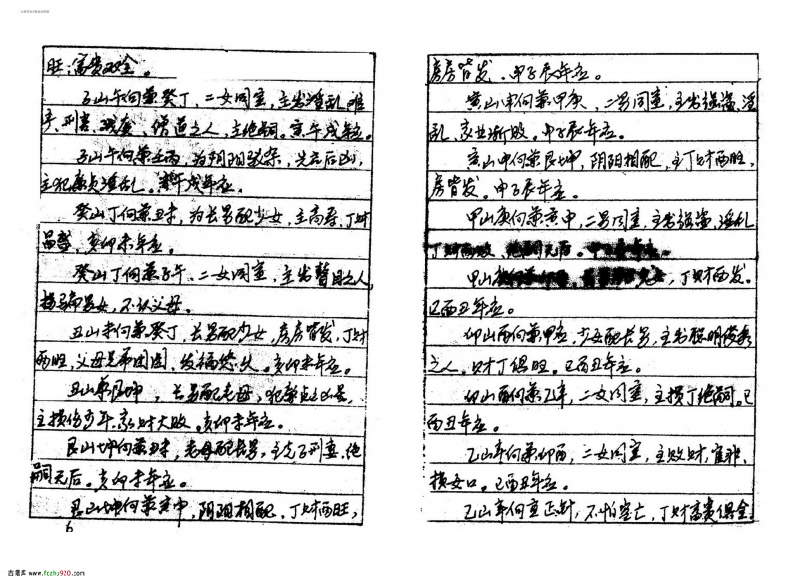 旺,富贵双全。
子山午向兼癸丁,二女同室,主出淫乱难
产,刑害,残废,僧道之人,主绝嗣,寅午戌年应。
子山午向兼壬丙,为阴阳驳杂,先吉后凶,
主犯廉贞淫乱。寅午戌年应。
癸山丁向兼丑未,为长男配少女,主高寿、丁财
昌盛,亥卯未年应。
癸山丁向兼子午、二女同室,主出瞽目之人,
损男女,不认父母。
丑山未向兼癸丁,长男配少女,房房皆发,丁财
两旺,父母兄弟团圆,发福悠久。亥卯未年应。
丑山兼艮坤,长男配老母,犯廉贞凶星,
主损伤少年,家财大败。亥卯未年应。
艮山坤向兼丑未,老母配长男,主克子刑妻,绝
嗣无后。亥卯未年应。
艮山坤向兼寅申,阴阳相配,丁财两旺,
6
房房皆发,申子辰年应。
寅山申向兼甲庚,二男同室,主出强盗,淫
乱,家业渐败,申子辰年应。
寅山申向兼艮坤,阴阳相配,主丁财两旺,
房皆发。申子辰年应。
甲山庚向兼寅申,二男同室,主出强盗,淫乱
丁财两败,绝嗣无后。
甲山,丁财两发。
巳酉丑年应。
卯山酉向兼甲庚,少女配长男,主出聪明俊秀
之人,财丁俱旺。巳酉丑年应。
卯山酉向兼乙辛,二女同室,主损丁绝嗣。巳
酉丑年应。
乙山辛向兼卯酉,二女同室,主败财,官非,
损女口。巳酉丑年应。
乙山辛向重正针,不怕空亡,丁财富贵俱全。
古易库 www.fczhu920.com